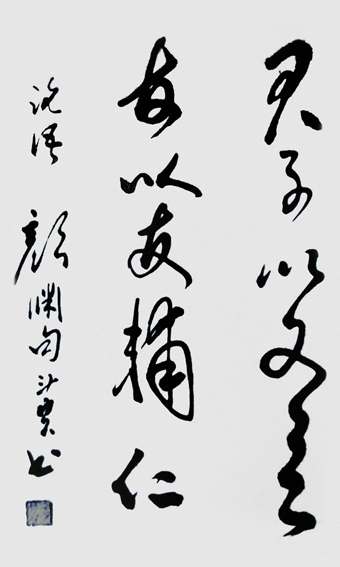 君子以文會
友以友輔仁
論語 顏淵句 書